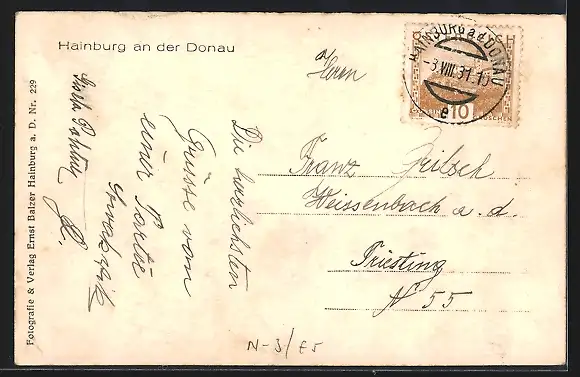 Hainburg an der Donau
Fotografie & Verlag Ernst Balzer Hainburg a. D. Nr. 229
Die herzlichsten
Grüsse von
einer Partie
HAINBURG a.d. DONAU
-3.VIII.31.
e
10
GROSCHEN
Herrn
Franz Fritsch
Weissenbach a. d.
Triesting
N 55
N-3/